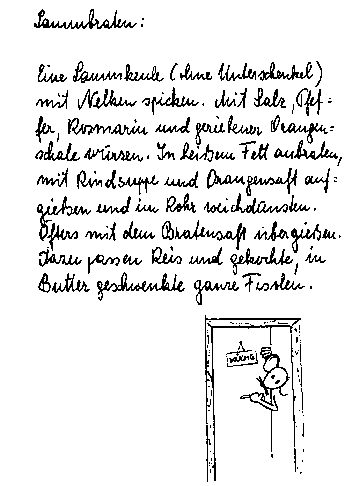 Lammbraten:
Eine Lammkeule (ohne Unterschenkel)
mit Nelken spicken. Mit Salz, Pfef=
fer, Rosmarin und geriebener Orangen=
schale würzen. In heißem Fett anbraten,
mit Rindsuppe und Orangensaft auf=
gießen und im Rohr weichdünsten.
Öfters mit dem Bratensaft übergießen.
Dazu passen Reis und gekochte, in
Butter geschwenkte ganze Fisolen.